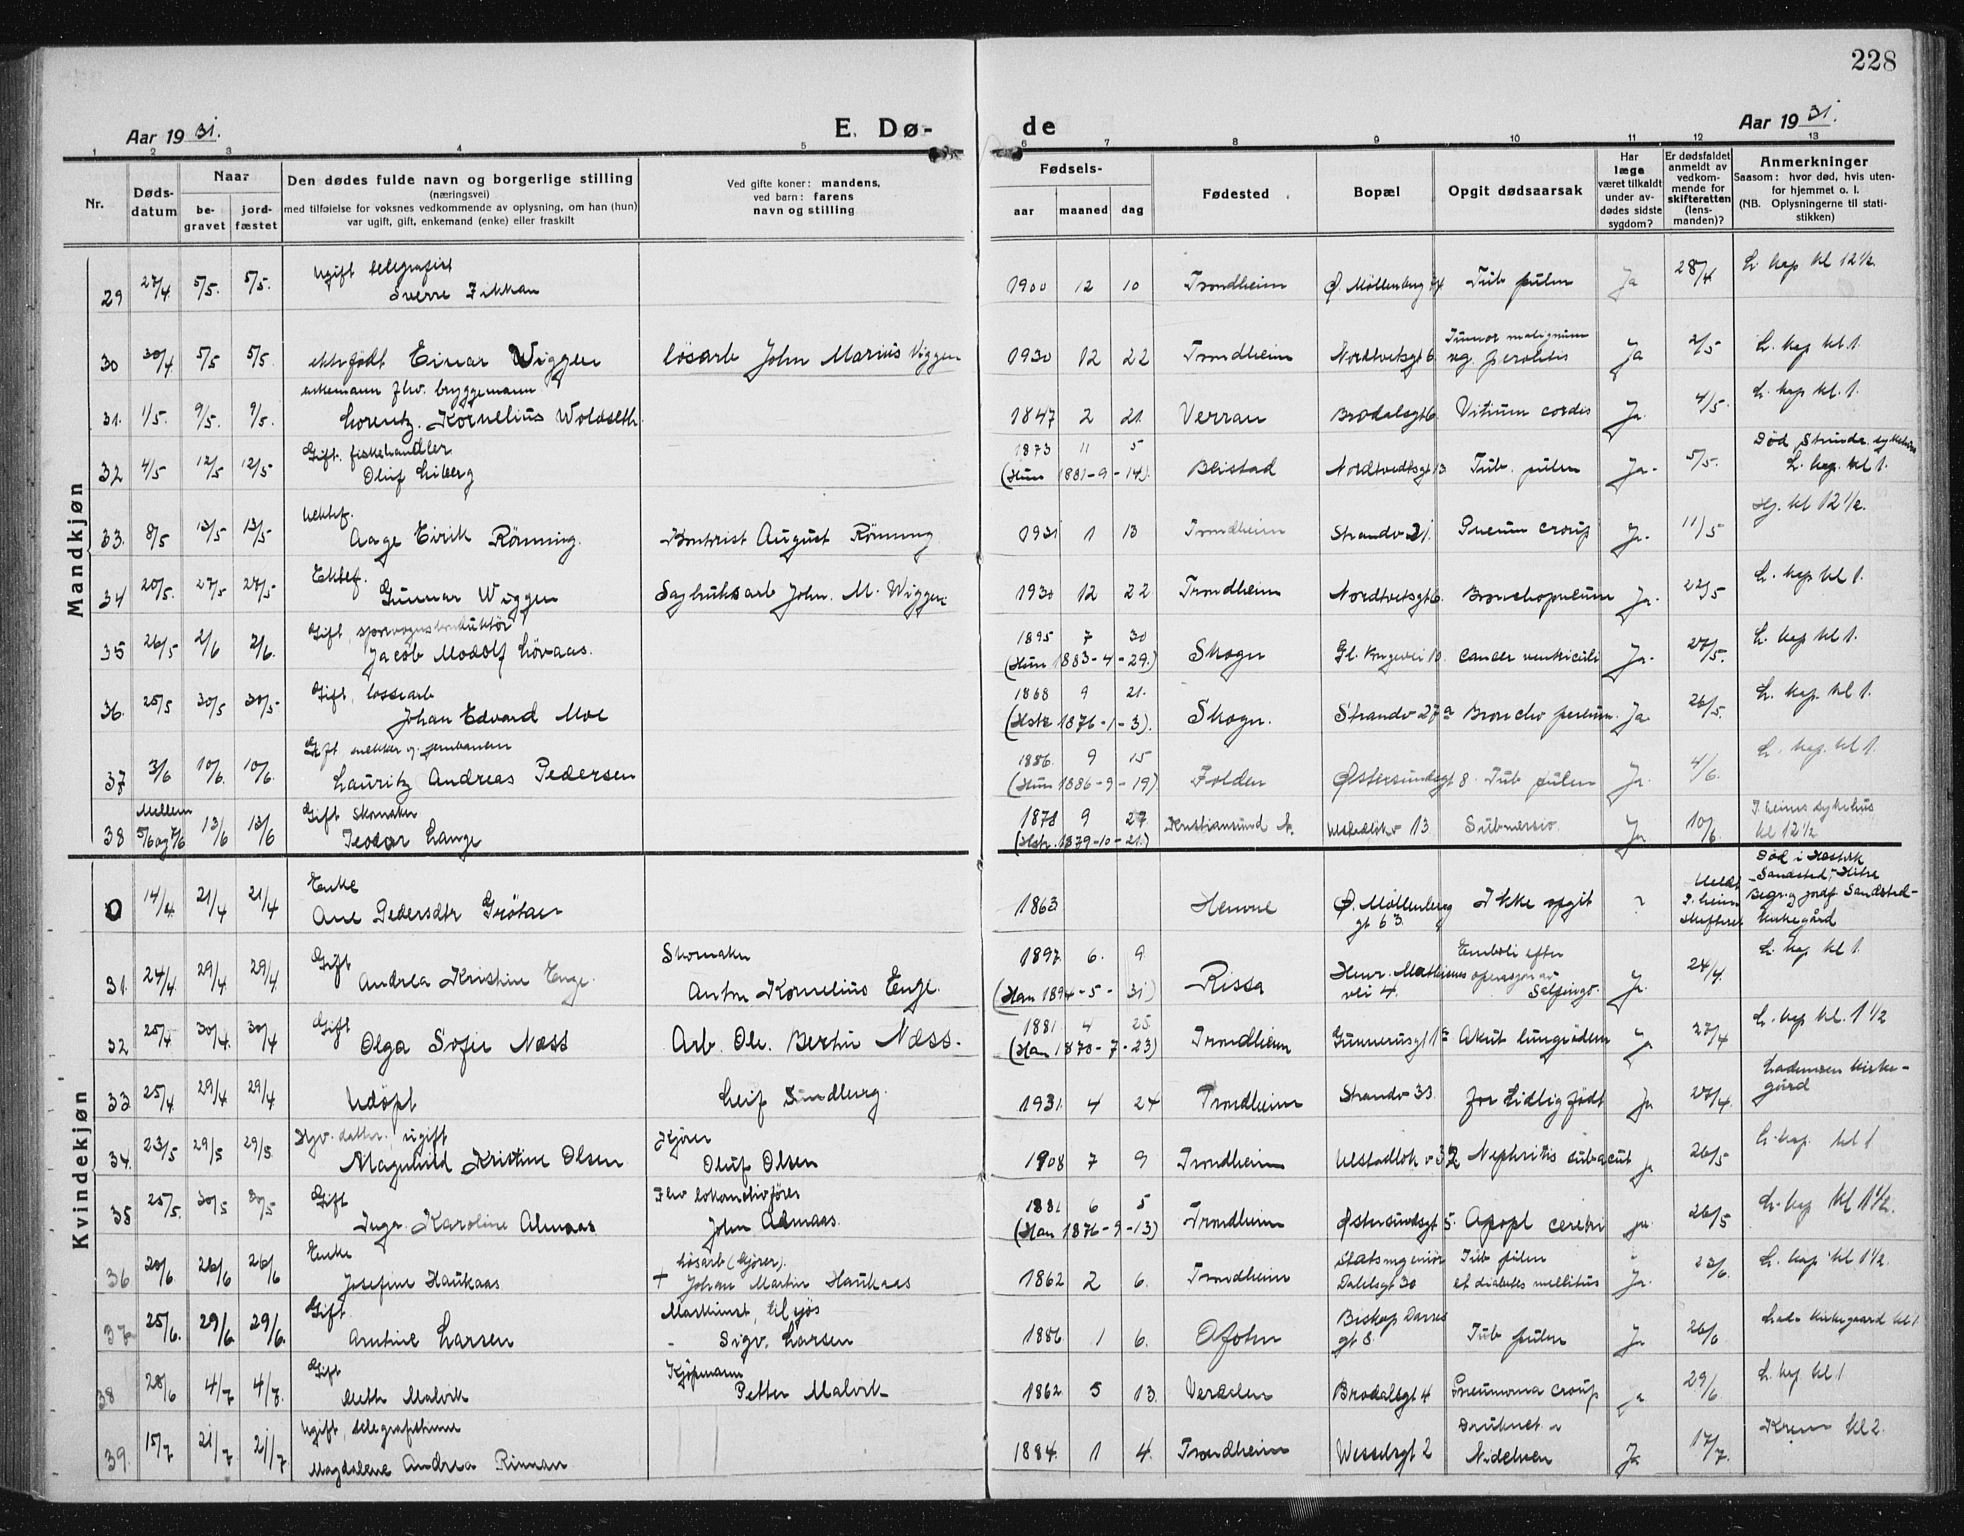 228
Aar 1931.
E. Dø-
de
Aar 1931.
1 2 3 4 5 6 7 8 9 10 11 12 13
Nr.
Døds-
datum
Naar
be-
gravet
jord-
fæstet
Den dødes fulde navn og borgerlige stilling
(næringsvei)
med tilføielse for voksnes vedkommende av oplysning, om han (hun)
var ugift, gift, enkemand (enke) eller fraskilt
Ved gifte koner: mandens,
ved barn: farens
navn og stilling
Fødsels-
aar maaned dag
Fødested
Bopæl
Opgit dødsaarsak
Har
læge
været tilkaldt
under av-
dødes sidste
sygdom?
Er dødsfaldet
anmeldt av
vedkom-
mende for
skifteretten
(lens-
manden)?
Anmerkninger
Saasom: hvor død, hvis uten-
for hjemmet o. l.
(NB. Oplysningerne til stati-
stikken)
Mandkjøn
Ugift telegrafist
29 27/4 5/5. 5/5. Sverre Fikkan 1900 12 10 Trondheim Ø. Møllenberg Tub pulm Ja 28/4 L. kap kl 12 1/2
30 30/4 5/5 5/5. ektefødt Einar Wiggen løsarb John Marius Viggen 1930 12 22 Trondheim Nordtvetsgt 6. Tumor malignum Ja 2/5 L. kap kl 1.
enkemann fhv. bryggemann
31. 1/5 9/5. 9/5. Lorentz Kornelius Woldseth 1847 2 21. Verran Brodalsgt 6. Vitium cordis Ja. 4/5. L. kap kl. 1.
Gift. fiskehandler 1873 11 5 Død Strinda sykehus
32 4/5 12/5 12/5 Oluf Liberg (Hun 1881-9-14). Beistad Nordtvedtsgt 13 Tub. pulm Ja. 5/5. L. kap. kl 1.
Ektef.
33. 8/5 13/5 13/5 Aage Eirik Rønning. Kontorist August Rønning. 1931 1 13 Trondheim Strandv 21. Pneum croup Ja. 11/5 Hj. kl 12 1/2.
Ektef.
34 20/5. 27/5 27/5. Gunnar Wiggen Sagbruksarb John. M. Wiggen 1930 12 22 Trondheim Nordtvetsgt 6. Bronchopneum Ja. 22/5 L. kap kl 1.
Gift, sporvognskonduktør 1895 7 30
35 26/5 2/6 2/6. Jacob Modolf Løvaas. (Hun 1883-4-29.) Skogn Gl. Kongevei 10. Cancer ventriculi Ja. 27/5. L. kap kl 1.
Gift, løssearb 1868 9 21.
36. 25/5 30/5 30/5 Johan Edvard Moe (Hstr 1876-1-3). Skogn. Strandv 27 a Broncho pneum. Ja 26/5. L. kap. kl 1.
Gift snekker og 1886. 9 15
37 3/6 10/6. 10/6. Lauritz Andreas Pedersen (Hun 1886-9-19). Folden Østersundsgt 8. Tub pulm Ja. 4/6. L. kap. kl 1.
Mellem Gift Skomaker 1878 9 27 T.heims sykehus
38 5/6 og 7/6 13/6 13/6 Teodor Lange (Hstr. 1879-10-21.) Kristiansund N. 13 Submersio. Ja 10/6. kl 12 1/2
Kvindekjøn
Enke Død i
0 14/4 21/4 21/4 Ane Pedersdtr Grøtan 1863 Hemne Ø. Møllenberg gt 63. Ikke opgit ? Meldt T.heim skifteret Sandstad, Hitra Begr. og jordf. Sandstad- kirkegård
Gift Skomaker 1897. 6. 9. Emboli efter
31. 24/4. 29/4 29/4 Andrea Kristine Enge. Anton Kornelius Enge. (Han 1894-5-31) Rissa Henr. Mathisens vei 4. operasjon av Salpingt. Ja. 24/4. L. kap kl 1
Gift 1881. 4 25.
32 25/4 30/4. 30/4 Olga Sofie Næss Arb. Ole. Bertin Næss. (Han 1878-7-23) Trondheim Gunnerusgt 1 a Akut lungeødem Ja 27/4 L. kap kl. 1 1/2
33 25/4 29/4 29/4 Udøpt Leif Sundberg. 1931. 4 24 Trondheim Strandv 33. for tidlig født Ja 27/4. Lademoen kirke- gård
ugift Kjører
34. 23/5 29/5 29/5. Magnhild Kristine Olsen Oluf Olsen 1908 7 9 Trondheim 32 Nephritis subacut Ja 26/5 L. kap. kl 1
Gift Fhv lokomotivfører 1881 6 5
35 25/5. 30/5 30/5 Inga Karoline Almaas John Almaas. (Han 1876-9-13) Trondheim Østersundsgt 5. Apopl cerebri ja. 26/5 L. kap kl 1 1/2.
Enke Løsarb (kjører).
36 20/6 26/6 26/6 Josefine Haukaas + Johan Martin Haukaas 1862 2 6. Trondheim Statsingeniør Dahlsgt 30 Tub pulm et diabetes mellitus Ja. 23/6. L. kap kl 1 1/2.
Gift Maskinist, til sjøs
37 25/6. 29/6 29/6. Amtine Larsen Sigv. Larsen 1886 1 6. Ofoten Biskop Darres gt 8. Tub pulm Ja 26/6 Lade kirkegaard kl 1
Gift Kjøpmann
38 28/6 4/7 4/7. Meth Malvik Petter Malvik 1862 5 13. Verdalen Brodalsgt 4 Pneumonia croup ja 29/6 L. kap kl 1
Ugift, telegrafistinne Druknet i
39. 15/7 21/7 21/7 Magdalene Andrea Rinnan 1884. 1 4. Trondheim Wesselsgt 2 Nidelven Ja 17/7. Krem kl 2.